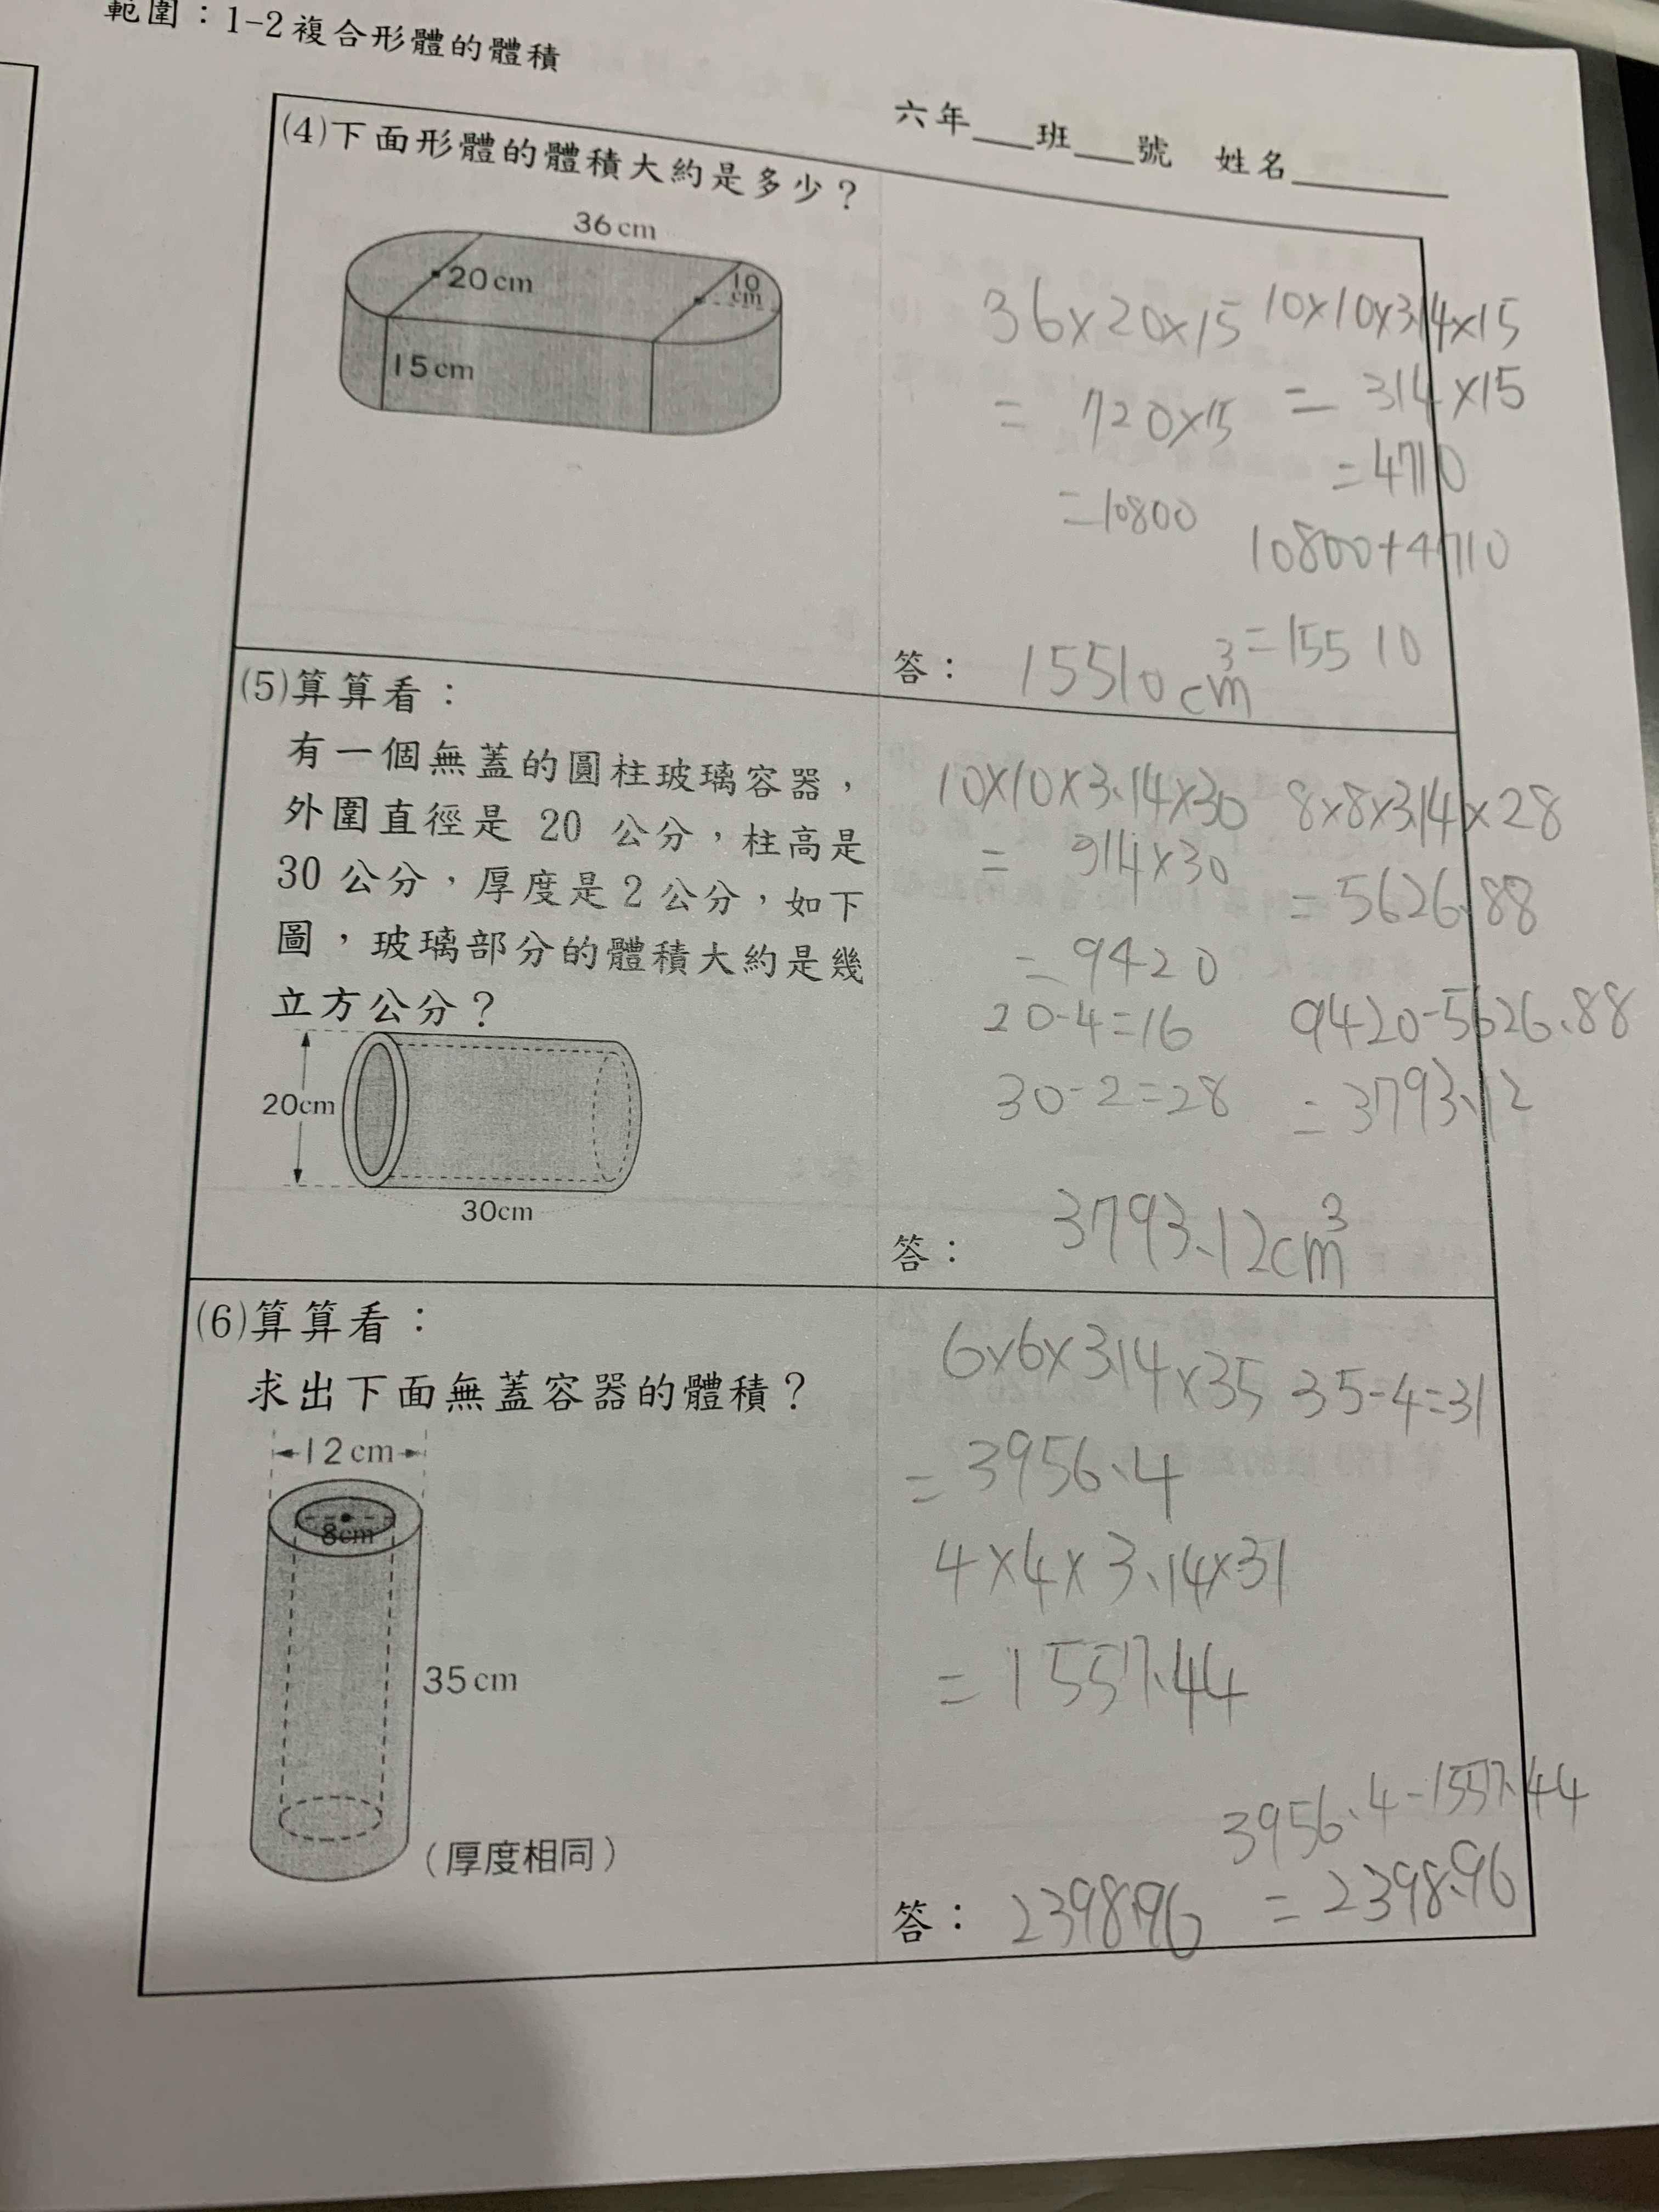 範圍：1-2複合形體的體積
六年___班___號 姓名______
(4)下面形體的體積大約是多少？
36cm
20cm
10
cm
15cm
36×20×15
=720×15
=10800
10×10×3.14×15
=314×15
=4710
10800+4710
=15510
答：15510cm³
(5)算算看：
有一個無蓋的圓柱玻璃容器，
外圍直徑是 20 公分，柱高是
30 公分，厚度是 2 公分，如下
圖，玻璃部分的體積大約是幾
立方公分？
20cm
30cm
10×10×3.14×30
=314×30
=9420
20-4=16
30-2=28
8×8×3.14×28
=5626.88
9420-5626.88
=3793.12
答：3793.12cm³
(6)算算看：
求出下面無蓋容器的體積？
12cm
8cm
35cm
(厚度相同)
6×6×3.14×35
=3956.4
35-4=31
4×4×3.14×31
=1557.44
3956.4-1557.44
=2398.96
答：2398.96